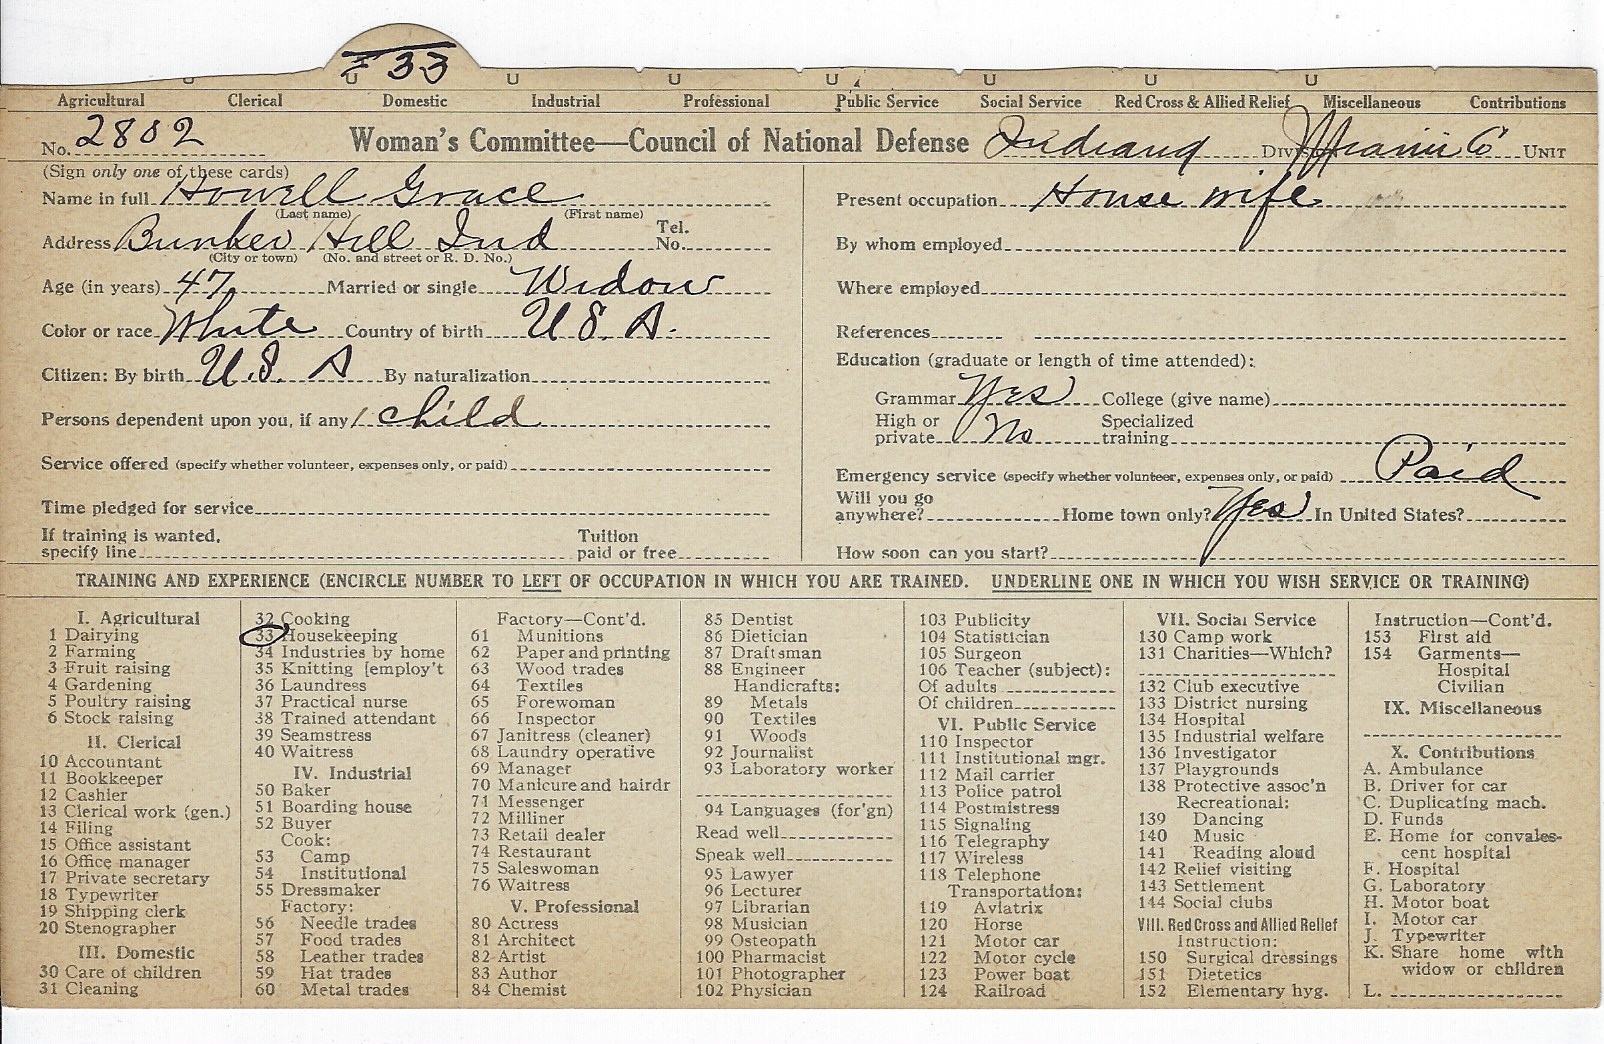 33
U U U U U U U U
Agricultural Clerical Domestic Industrial Professional Public Service Social Service Red Cross & Allied Relief Miscellaneous Contributions
No. 2802 Woman's Committee—Council of National Defense Indiana Division Miami Co Unit
(Sign only one of these cards)
Name in full Howell Grace
(Last name) (First name)
Address Bunker Hill Ind Tel. No.
(City or town) (No. and street or R. D. No.)
Age (in years) 47 Married or single Widow
Color or race White Country of birth U S. A.
Citizen: By birth U.S. A By naturalization
Persons dependent upon you, if any 1 child
Service offered (specify whether volunteer, expenses only, or paid)
Time pledged for service
If training is wanted, specify line Tuition paid or free
Present occupation House wife
By whom employed
Where employed
References
Education (graduate or length of time attended):
Grammar Yes College (give name)
High or private No Specialized training
Emergency service (specify whether volunteer, expenses only, or paid) Paid
Will you go anywhere? Home town only? Yes In United States?
How soon can you start?
TRAINING AND EXPERIENCE (ENCIRCLE NUMBER TO LEFT OF OCCUPATION IN WHICH YOU ARE TRAINED. UNDERLINE ONE IN WHICH YOU WISH SERVICE OR TRAINING)
I. Agricultural
1 Dairying
2 Farming
3 Fruit raising
4 Gardening
5 Poultry raising
6 Stock raising
II. Clerical
10 Accountant
11 Bookkeeper
12 Cashier
13 Clerical work (gen.)
14 Filing
15 Office assistant
16 Office manager
17 Private secretary
18 Typewriter
19 Shipping clerk
20 Stenographer
III. Domestic
30 Care of children
31 Cleaning
32 Cooking
33 Housekeeping
34 Industries by home
35 Knitting [employ't
36 Laundress
37 Practical nurse
38 Trained attendant
39 Seamstress
40 Waitress
IV. Industrial
50 Baker
51 Boarding house
52 Buyer
Cook:
53 Camp
54 Institutional
55 Dressmaker
Factory:
56 Needle trades
57 Food trades
58 Leather trades
59 Hat trades
60 Metal trades
Factory—Cont'd.
61 Munitions
62 Paper and printing
63 Wood trades
64 Textiles
65 Forewoman
66 Inspector
67 Janitress (cleaner)
68 Laundry operative
69 Manager
70 Manicure and hairdr
71 Messenger
72 Milliner
73 Retail dealer
74 Restaurant
75 Saleswoman
76 Waitress
V. Professional
80 Actress
81 Architect
82 Artist
83 Author
84 Chemist
85 Dentist
86 Dietician
87 Draftsman
88 Engineer
Handicrafts:
89 Metals
90 Textiles
91 Woods
92 Journalist
93 Laboratory worker
94 Languages (for'gn)
Read well
Speak well
95 Lawyer
96 Lecturer
97 Librarian
98 Musician
99 Osteopath
100 Pharmacist
101 Photographer
102 Physician
103 Publicity
104 Statistician
105 Surgeon
106 Teacher (subject):
Of adults
Of children
VI. Public Service
110 Inspector
111 Institutional mgr.
112 Mail carrier
113 Police patrol
114 Postmistress
115 Signaling
116 Telegraphy
117 Wireless
118 Telephone
Transportation:
119 Aviatrix
120 Horse
121 Motor car
122 Motor cycle
123 Power boat
124 Railroad
VII. Social Service
130 Camp work
131 Charities—Which?
132 Club executive
133 District nursing
134 Hospital
135 Industrial welfare
136 Investigator
137 Playgrounds
138 Protective assoc'n
Recreational:
139 Dancing
140 Music
141 Reading aloud
142 Relief visiting
143 Settlement
144 Social clubs
VIII. Red Cross and Allied Relief
Instruction:
150 Surgical dressings
151 Dietetics
152 Elementary hyg.
Instruction—Cont'd.
153 First aid
154 Garments—
Hospital
Civilian
IX. Miscellaneous
X. Contributions
A. Ambulance
B. Driver for car
C. Duplicating mach.
D. Funds
E. Home for convales-
cent hospital
F. Hospital
G. Laboratory
H. Motor boat
I. Motor car
J. Typewriter
K. Share home with
widow or children
L.